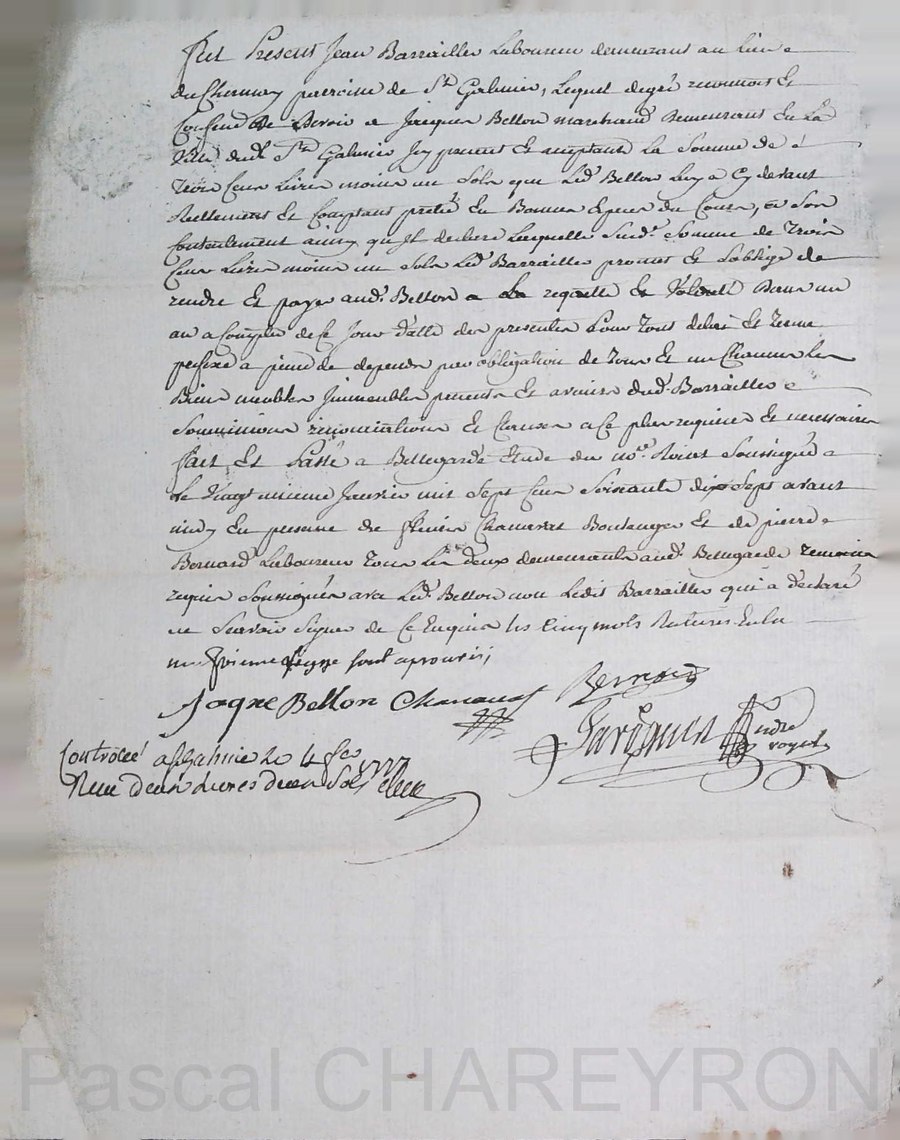 Fut Present Jean Barrailler Laboureur demeurant au lieu
du Chernay parroisse de St Galmier, Lequel de gré reconnoit Et
Confesse De Devoir a Jacques Bellon marchand Demeurant En La
Ville dud. St Galmier Icy present Et acceptant La Somme de
Trois Cens Livres moins un Sols que Led. Bellon Luy a Cy devant
Reellement Et Comptant presté En Bonnes Especes du Cours, a Son
Contentement ainsy qu'Il declare Laquelle Susd. Somme de Trois
Cens Livres moins un Sols Led. Barrailler promet Et S'oblige de
rendre Et payer aud. Bellon a La requette Et Volonté Dans un
an a Compter de Ce Jour d'atte des presentes Pour Tous delais Et Terme
prefixé a peine de depends par obligation de Tous Et un Chacuns Les
Biens meubles Immeubles presents Et avenirs dud. Barrailler
Soumissions renonciations Et Clauses a Ce plus requises Et necessaires
fait Et Passé a Bellegarde Etude du No.re Roial Soussigné
Le Vingt neuf Janvier mil Sept Cens Soixante dix Sept avant
midy En presence de Boulanger Et de pierre
Bernard Laboureur Tous Les deux demeurants aud. Bellegarde Temoins
requis Soussignés avec Led. Bellon non Ledit Barrailler qui a declaré
ne Scavoir Signer de Ce Enquis les Cinq mots Raturés En la
neufvieme ligne sont aprouvés;
Jaqne Bellon Bernard
Controllé a St Galmie le 4 fev 1777
Reçu deux Livres deux Sols